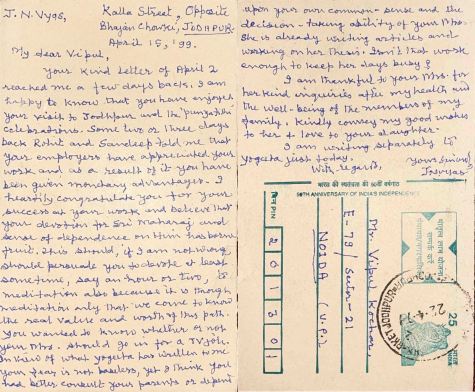 J. N. Vyas,
Kalla Street, Opposite
Bhajan Chowki, JODHPUR
April 15, '99.
My dear Vipul,
Your kind letter of April 2
reached me a few days back. I am
happy to know that you have enjoyed
your visit to Jodhpur and the punyatithi
celebrations. Some two or three days
back Rohit and Sandeep told me that
your employers have appreciated your
work and as a result of it you have
been given monetary advantages. I
heartily congratulate you for your
success at your work and believe that
your devotion for Sri Maharaj and
sense of dependence on Him has borne
fruit. This should, if I am not wrong
should persuade you to devote at least
sometime, say an hour or two, to
meditation also because it is through
meditation only that we come to know
the real value and worth of this path.
You wanted to know whether or not
your Mrs. should go in for a TV job.
In view of what Yogeta has written to me
your fear is not baseless, yet I think you
had better consult your parents or depend
upon your own common-sense and the
decision-taking ability of your Mrs.
She is already writing articles and
working on her thesis. Isn't that work
enough to keep her days busy?
I am thankful to your Mrs. for
her kind inquiries after my health and
the well-being of the members of my
family. Kindly convey my good wishes
to her & love to your daughter.
I am writing separately to
Yogeta just today.
With regards,
Yours Sincerely
भारत की स्वतंत्रता की 50वीं वर्षगांठ
50TH ANNIVERSARY OF INDIA'S INDEPENDENCE
Mr. Vipul Kochar,
E-78/Sector-21
NOIDA (U.P.)
पिन PIN
201301
25